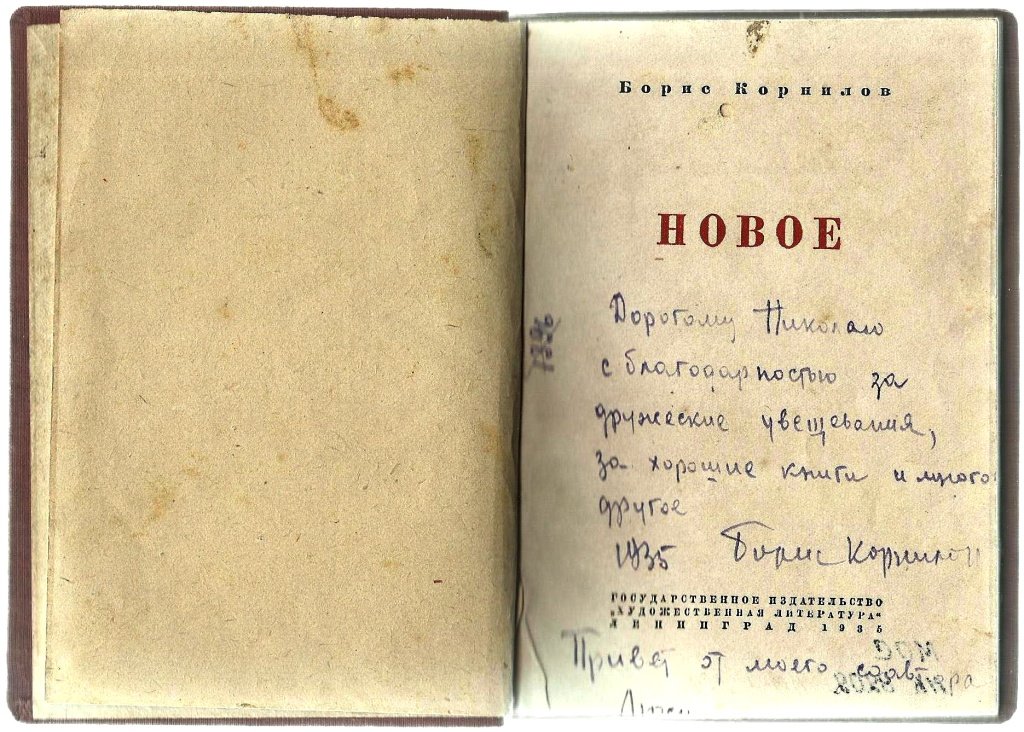 Борис Корнилов
НОВОЕ
Дорогому Николаю
с благодарностью за
дружеские увещевания,
за хорошие книги и много
другое
1935 Борис Корнилов
ГОСУДАРСТВЕННОЕ ИЗДАТЕЛЬСТВО
„ХУДОЖЕСТВЕННАЯ ЛИТЕРАТУРА“
ЛЕНИНГРАД 1935
Привет от моего соавтора